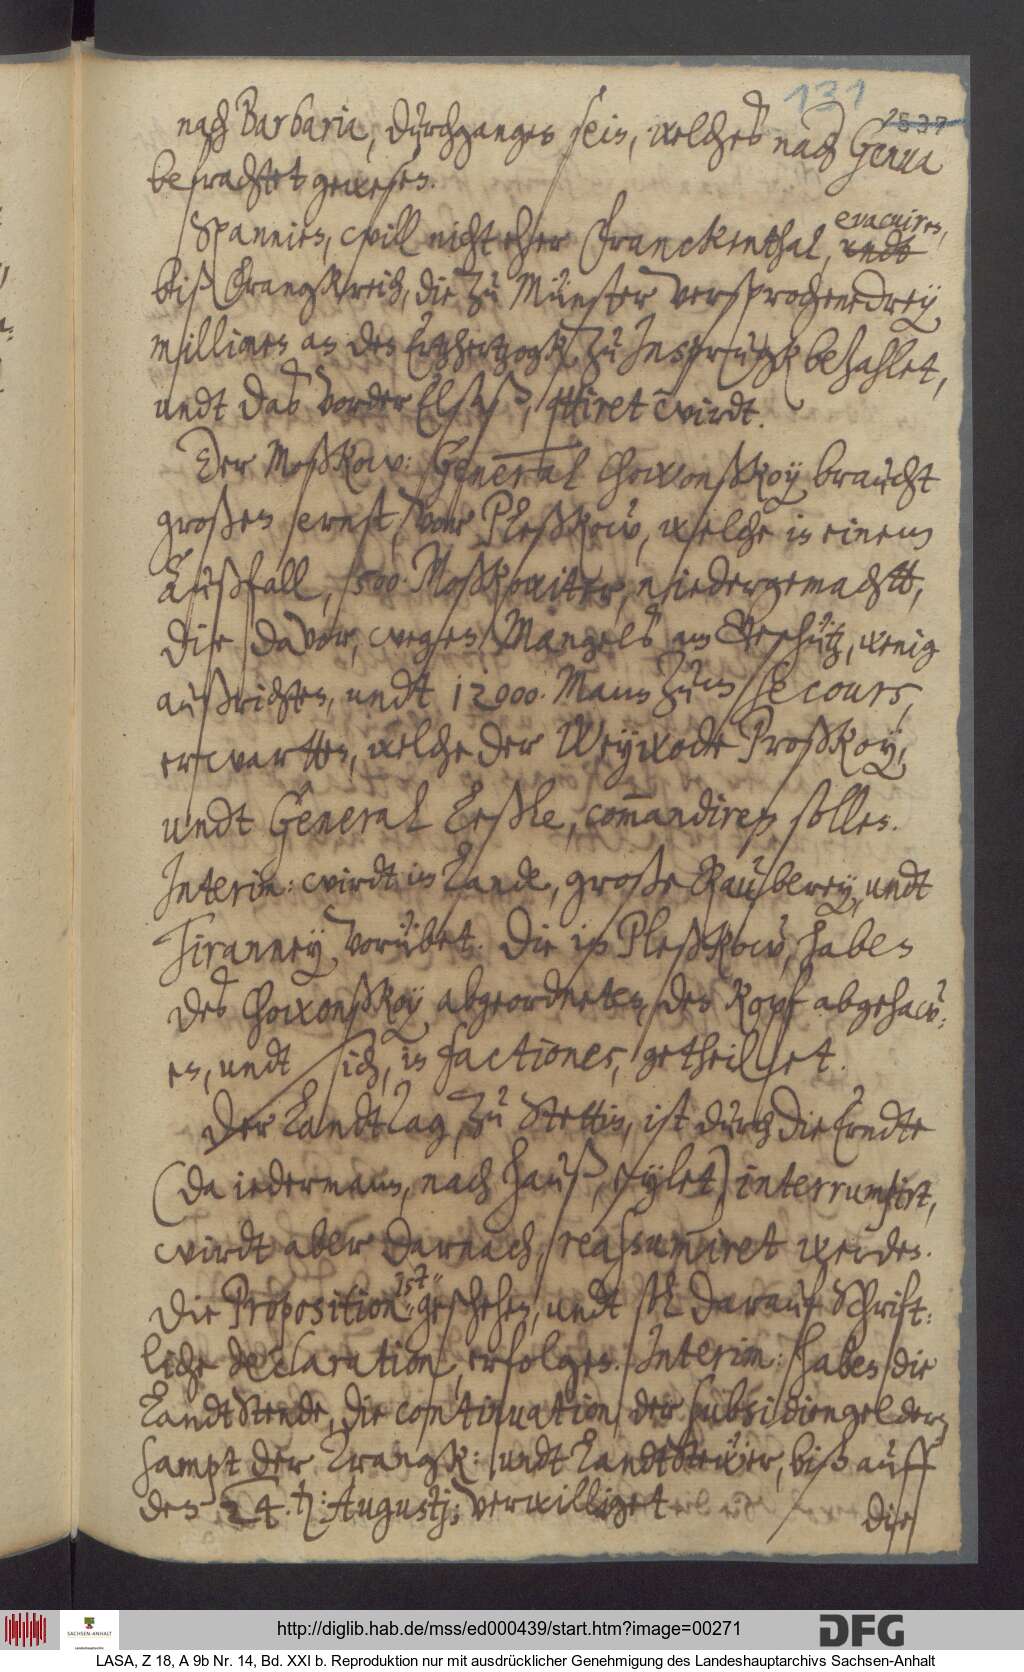 131
537
nach Barbaria, durchgangen sein, welches nach Genua
befrachtet gewesen.
Spannien, will nicht eher Franckenthal, evacuiren,
undt
biß Franckreich, die zu Münster versprochene drey
millionen an den Ertzhertzogk zu Insprugk bezahlet,
undt das vorder Elsaß, quittiret wirdt.
Der Moßkow: General Chowonßkoy braucht
großen ernst, vor Pleßkow, welche in einem
Außfall, 500 Moßkowiter, niedergemacht,
die davor, wegen Mangels am Geschütz, wenig
außrichten, undt 12000. Mann zum secours,
erwartten, welche der Weywode Proßkoy,
undt General Leßle, com̄andiren sollen.
Interim: wirdt im Lande, große Rauberey, undt
Tiranney verübet. Die in Pleßkow, haben
des Chowonßkoy abgeordneten, den Kopf abgehaw¬
en, undt sich, in factiones, getheilet.
Der LandtTag, zu Stettin, ist durch die Erndte
(da iederman, nach hauß, eylet) interrumpirt,
wirdt aber darnach, reassumiret werden.
Die Proposition ist geschehen, undt soll darauf Schrift:
liche declaration, erfolgen. Interim: haben die
LandtStende, die continuation der subsidiengelder,
sampt der Tranck: undt LandtStewer, biß auff
den 24. t: Augustj: verwilliget
die
http://diglib.hab.de/mss/ed000439/start.htm?image=00271
SACHSEN-ANHALT
DFG
LASA, Z 18, A 9b Nr. 14, Bd. XXI b. Reproduktion nur mit ausdrücklicher Genehmigung des Landeshauptarchivs Sachsen-Anhalt